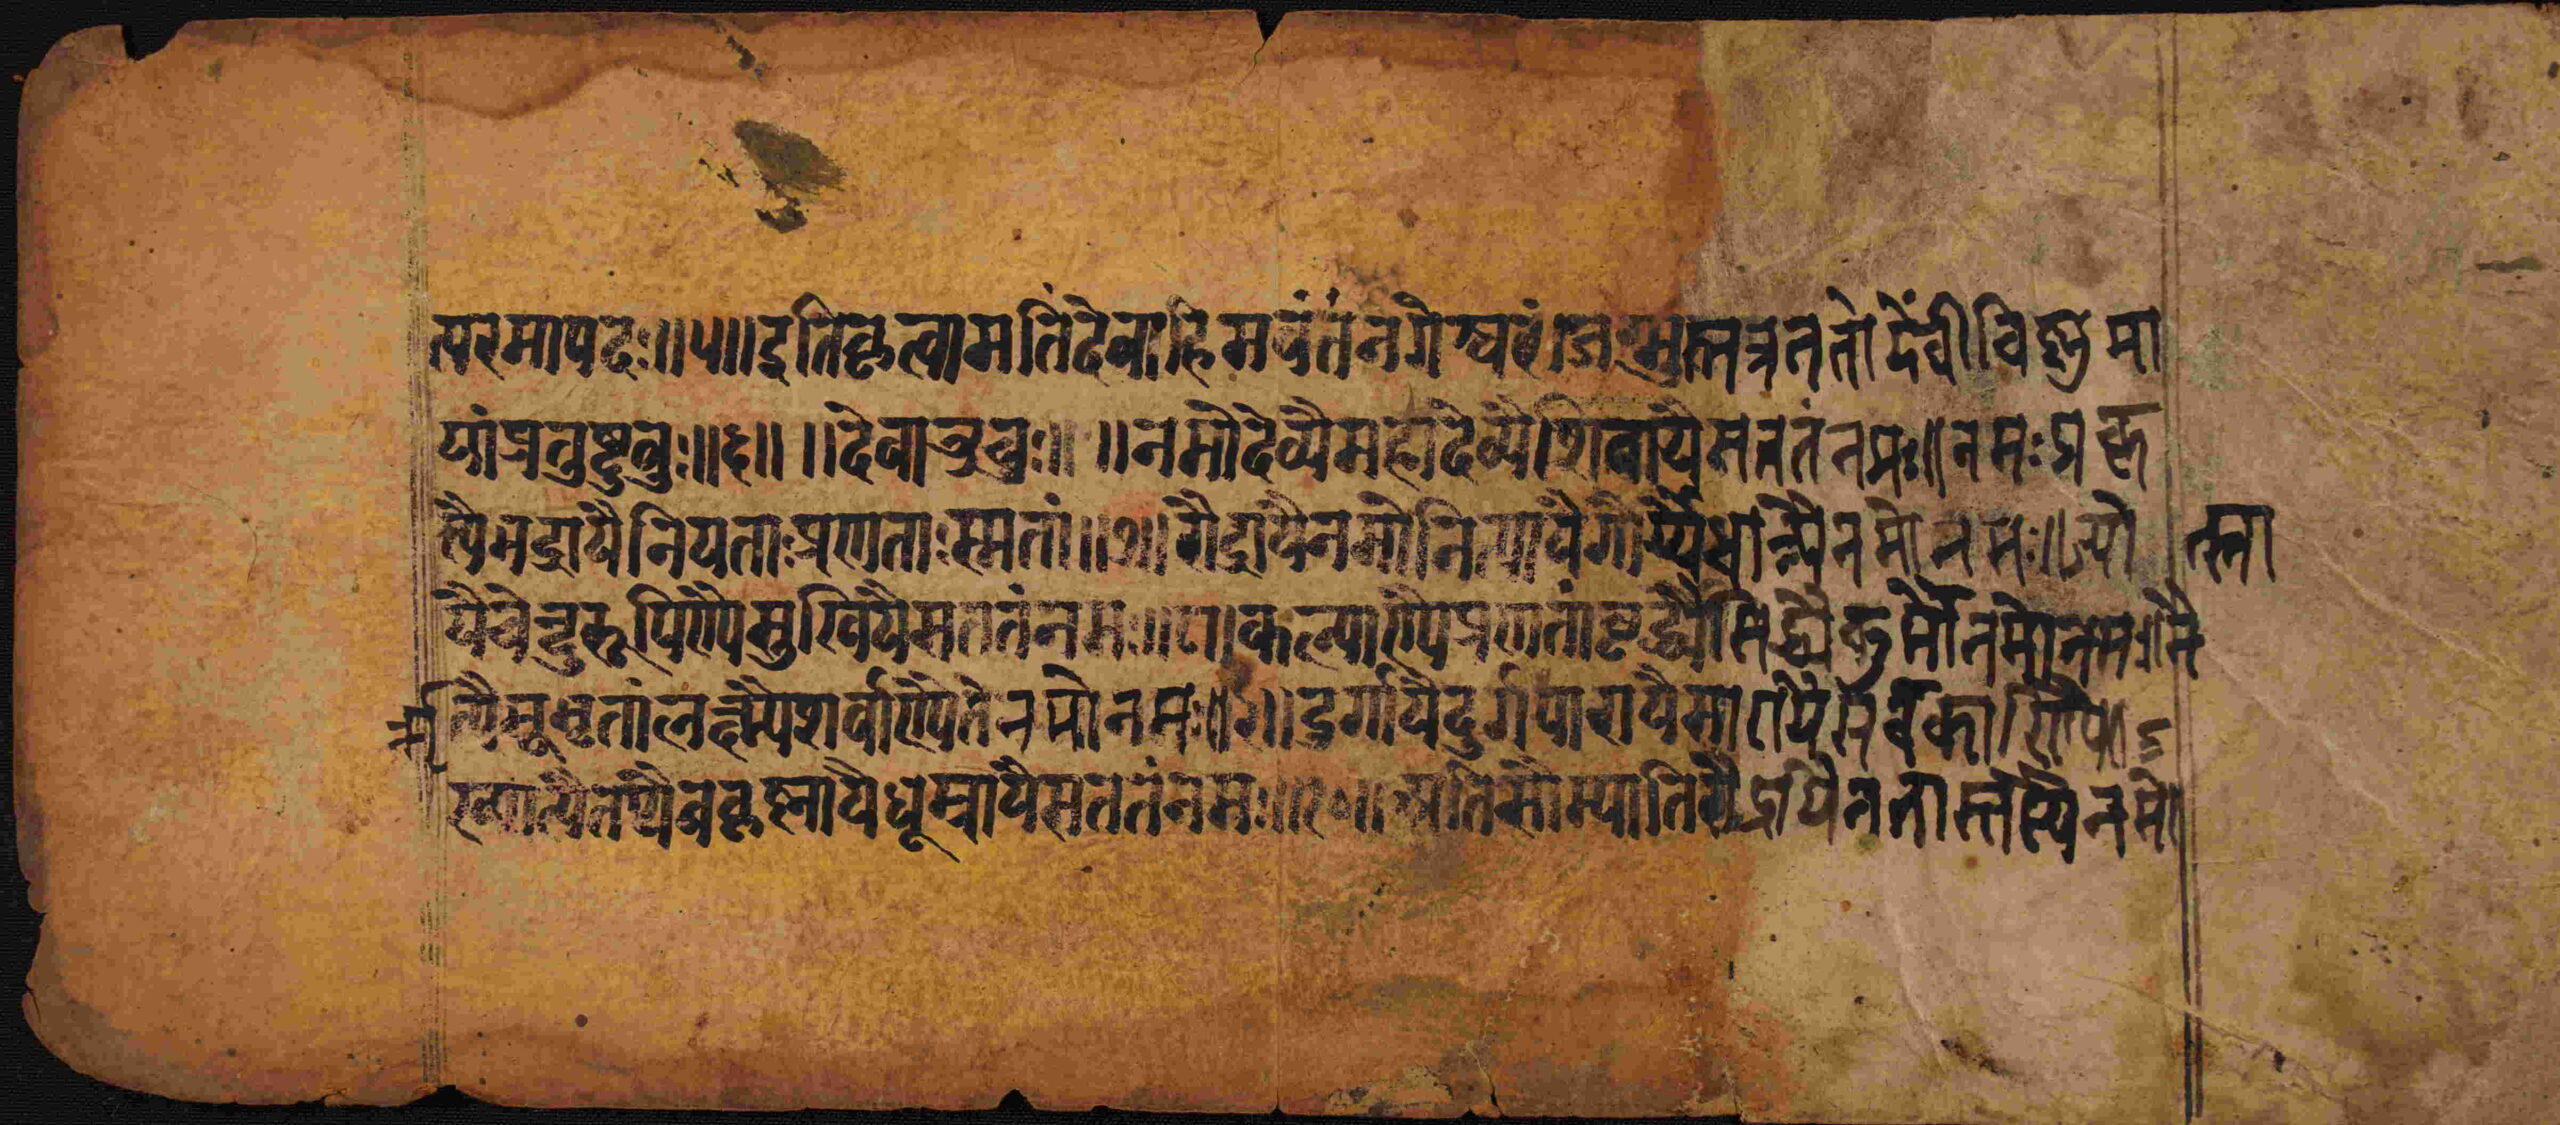 त्परमापदः॥५॥इतिकृत्वामतिंदेवाहिमवंतंनगेश्वरं।जग्मुस्तत्रततोदेवींविष्णुमा
यांप्रतुष्टुवुः॥६॥ ॥देवाऊचुः॥ ॥नमोदेव्यैमहादेव्यैशिवायैसततंनमः॥नमःप्रकृ
त्यैभद्रायैनियताःप्रणताःस्मतां॥७॥रौद्रायैनमोनित्यायैगौर्य्यैधात्र्यैनमोनमः॥ज्योत्स्ना
यैचेन्दुरूपिण्यैसुखायैसततंनमः॥८॥कल्याण्यैप्रणतांवृद्ध्यैसिद्ध्यैकुर्मोनमोनमः॥नै
र्ऋत्यैभूभृतांलक्ष्म्यैशर्वाण्यैतेनमोनमः॥९॥दुर्गायैदुर्गपारायैसारायैसर्वकारिण्यै॥
ख्यात्यैतथैवकृष्णायैधूम्रायैसततंनमः॥१०॥अतिसौम्यातिरौद्रायैनतास्तस्यैनमो